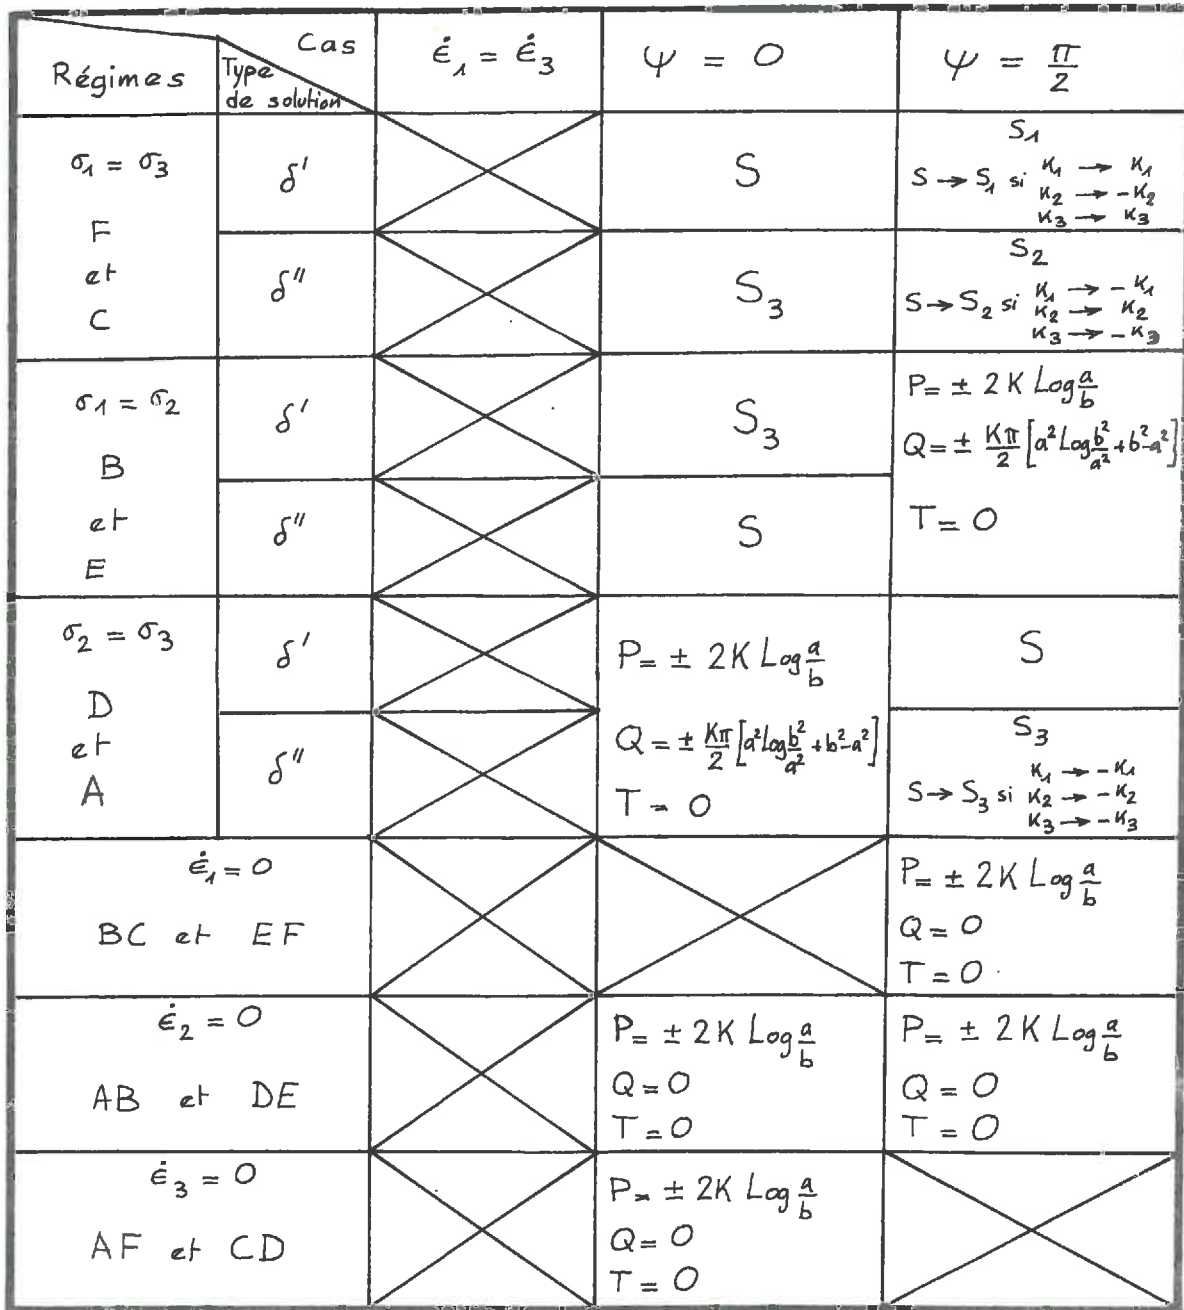 Cas
Régimes
Type
de solution
ε̇₁ = ε̇₃
Ψ = 0
Ψ = π/2
σ₁ = σ₃
F
et
C
δ'
S
S₁
S → S₁ si K₁ → K₁
K₂ → -K₂
K₃ → K₃
δ"
S₃
S₂
S → S₂ si K₁ → -K₁
K₂ → K₂
K₃ → -K₃
σ₁ = σ₂
B
et
E
δ'
S₃
P = ± 2K Log a/b
Q = ± Kπ/2 [a² Log b²/a² + b² - a²]
T = 0
δ"
S
σ₂ = σ₃
D
et
A
δ'
P = ± 2K Log a/b
Q = ± Kπ/2 [a² Log b²/a² + b² - a²]
T = 0
S
δ"
S₃
S → S₃ si K₁ → -K₁
K₂ → -K₂
K₃ → -K₃
ε̇₁ = 0
BC et EF
P = ± 2K Log a/b
Q = 0
T = 0
ε̇₂ = 0
AB et DE
P = ± 2K Log a/b
Q = 0
T = 0
P = ± 2K Log a/b
Q = 0
T = 0
ε̇₃ = 0
AF et CD
P = ± 2K Log a/b
Q = 0
T = 0